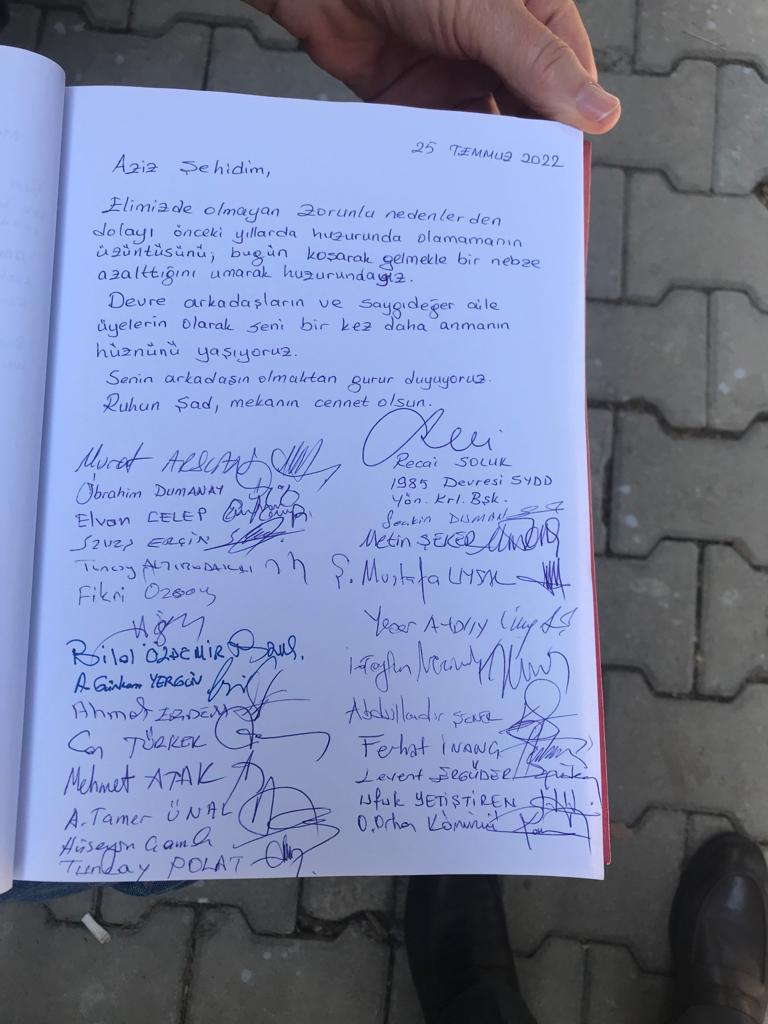 25 TEMMUZ 2022
Aziz Şehidim,
Elimizde olmayan zorunlu nedenlerden
dolayı önceki yıllarda huzurunda olamamanın
üzüntüsünü, bugün koşarak gelmekle bir nebze
azalttığını umarak huzurundayız.
Devre arkadaşların ve saygıdeğer aile
üyelerin olarak seni bir kez daha anmanın
hüznünü yaşıyoruz.
Senin arkadaşın olmaktan gurur duyuyoruz.
Ruhun Şad, mekanın cennet olsun.
Murat ARSLAN
İbrahim DUMANAY
Elvan CELEP
ERGİN
Tuncay
Fikri Özsoy
Bilal ÖZDEMİR
A. Gürkan YERGİN
Ahmet ERDEM
Can TÜRKER
Mehmet ATAK
A. Tamer ÜNAL
Hüseyin
Tuncay POLAT
Recai SOLUK
1985 Devresi SYDD
Yön. Krl. Bşk.
Seçkin DUMAN
Metin ŞEKER
Ş. Mustafa
Yaşar
Abdulkadir ŞENEL
Ferhat İNANÇ
Levent ERGÜDER
Ufuk YETİŞTİREN
O. Orhan Kömürcü